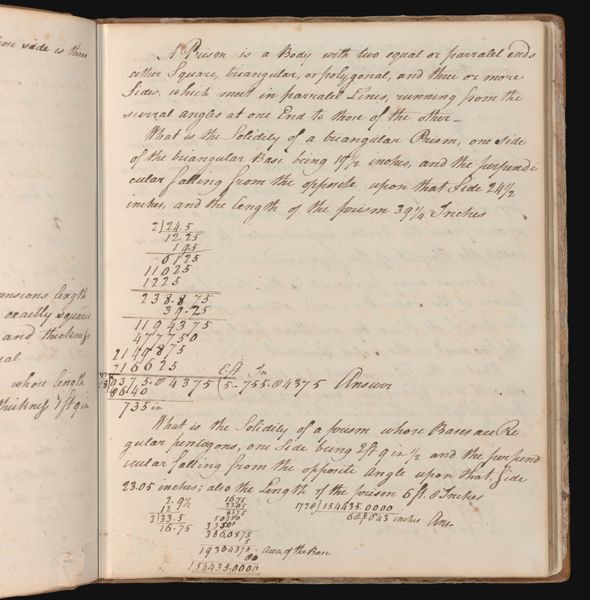 side is three
A Prism is a Body with two equal or parralel ends
either Square, triangular, or polygonal, and three or more
Sides, which meet in parralel Lines, running from the
several angles at one End to those of the other_
What is the Solidity of a triangular Prism, one side
of the triangular Base being 19½ inches, and the perpendi
cular falling from the opposite upon that Side 24½
inches, and the length of the prism 39¼ Inches
2|24.5
1225
195
6125
11025
1225
238.875
39.25
1194375
477750
length
2149875
exactly square
716625
and thickness
9375.84375 (5-755.84375 Answer
8640
whose length
735 in
thickness 1 ft 9 in
What is the Solidity of a prism whose Bases are Re
gular pentagons, one Side being 2ft 9in ½ and the perpend
icular falling from the opposite Angle upon that Side
23.05 inches; also the Length of the prism 6 ft. 8 Inches
2.9½
12
2|33.5
16.75
1675
2305
8375
386.0875
5
1930.4375 - Area of the Base
80
154435.0000
1728|154435.0000
inches Ans.